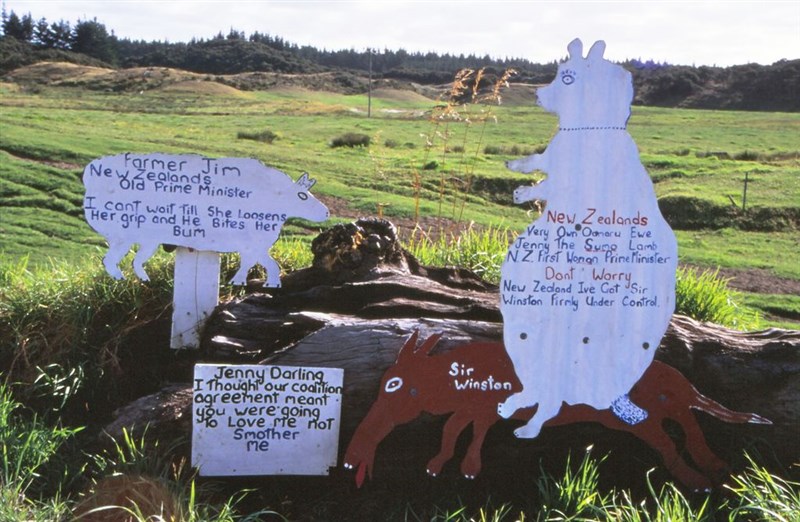 Farmer Jim
New Zealands
Old Prime Minister
I cant wait Till She loosens
Her grip and He Bites Her
Bum
New Zealands
Very Own Oamaru Ewe
Jenny The Sumo Lamb
N.Z. First Woman Prime Minister
Dont Worry
New Zealand Ive Got Sir
Winston Firmly Under Control.
Sir
Winston
Jenny Darling
I Thought our coalition
agreement meant
you were going
To Love me not
Smother
Me